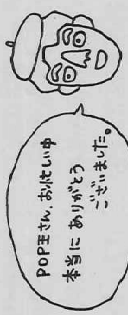 POP王さん、お忙しい中
本当にありがとう
ございました。